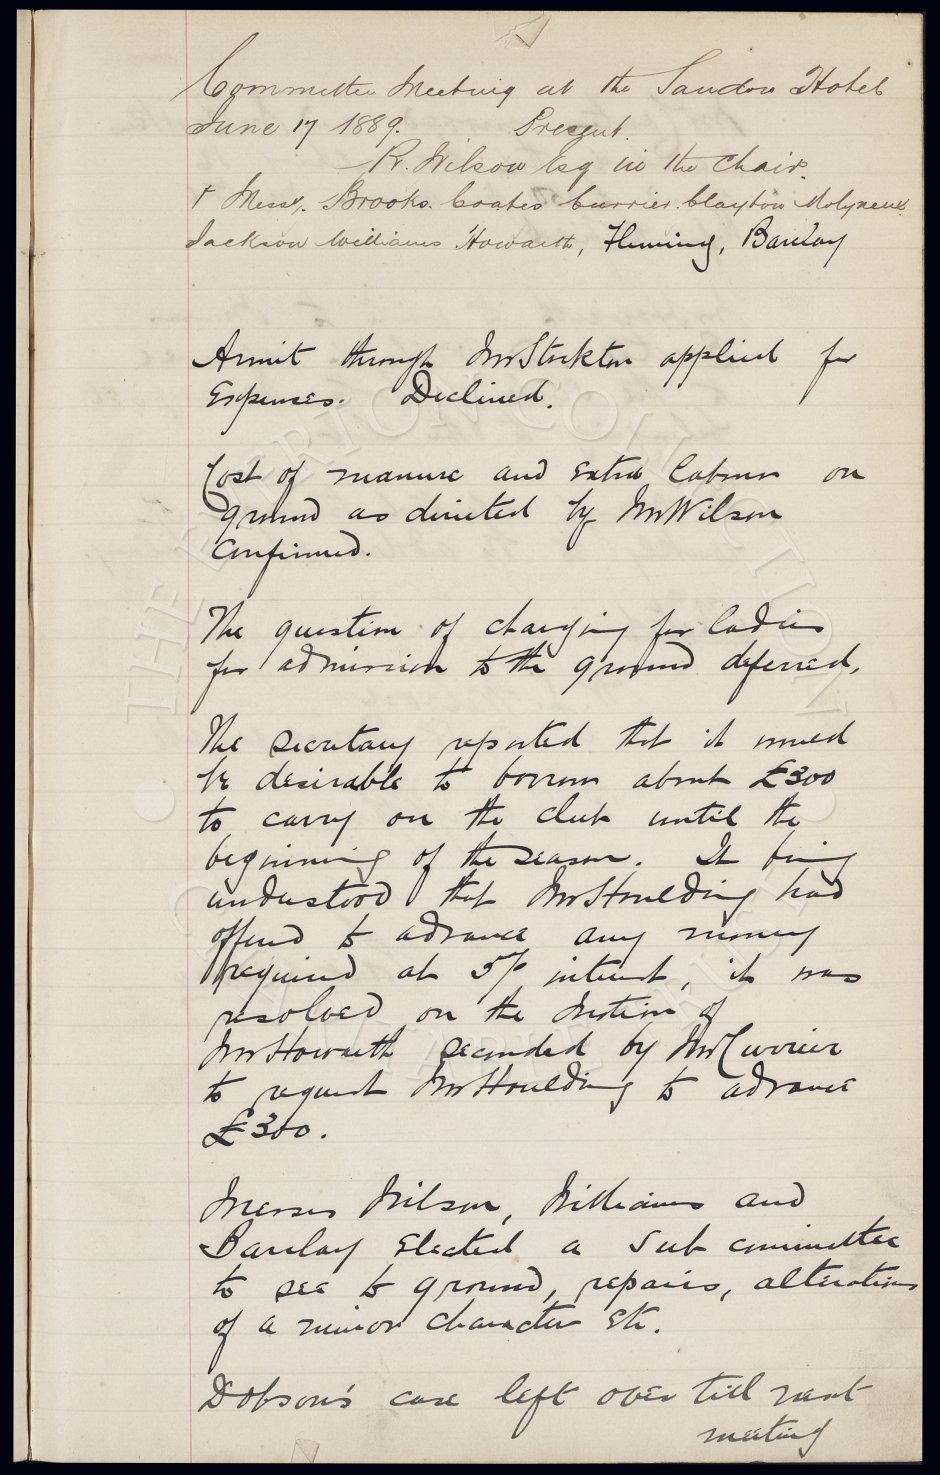 Committee Meeting at the Sandon Hotel
June 17 1889. Present.
R. Wilson Esq in the Chair.
+ Messrs. Brooks. Coates Currier. Clayton Molyneux.
Jackson Williams Howarth, Fleming, Barclay
Armit through Mr Stockton applied for
Expenses. Declined.
Cost of manure and extra labour on
ground as directed by Mr Wilson
confirmed.
The question of charging for ladies
for admission to the ground deferred.
The secretary reported that it would
be desirable to borrow about £300
to carry on the club until the
beginning of the season. It being
understood that Mr Houlding had
offered to advance any money
required at 5% interest, it was
resolved on the Motion of
Mr Howarth seconded by Mr Currier
to request Mr Houlding to advance
£300.
Messrs Wilson, Williams and
Barclay Elected a Sub committee
to see to ground, repairs, alterations
of a minor character Etc.
Dobson's case left over till next
meeting
THE EVERTON COLLECTION